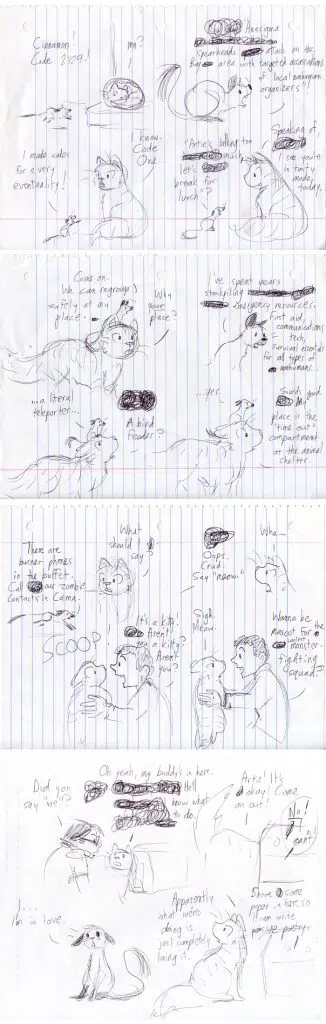 Cinnamon!
Code 2229!
Mn?
"Anasigma
spearheads attack on the
Bay area with targeted assassinations
of local nonhuman
organizers"!
I made codes
for every
eventuality!
I know.
Code
One.
"Artie's talking too
much,
let's
break for
lunch"?
Speaking of,
I see you're
in tasty
mode,
today.
Come on.
We can regroup
safely at my
place.
Why
your
place?
I've spent years
stockpiling
emergency resources.
First aid,
communications
tech,
survival essentials
for all types of
nonhumans...
...a literal
teleporter...
A bird
feeder?
...yes.
Sounds good.
My
place is the
"time out"
compartment
at the animal
shelter.
There are
burner phones
in the buffet.
Call our zombie
contacts in Colma.
What
should I
say?
Oops.
Crud.
Say "meow."
Wha—
SCOOP
It's a kitty!
Aren't
you a kitty?
Aren't
you?
Sigh.
Meow.
Wanna be the
mascot for a
monster-
fighting
squad?
Did you
say "we"?
Oh yeah, my buddy's in here.
He'll
know what
to do.
Artie! It's
okay! Come
on out!
No!
I
can't!
I...
I'm in love.
Apparently
what we're
doing is
just completely
losing it.
Shove some
paper in here so
I can write
poetry.